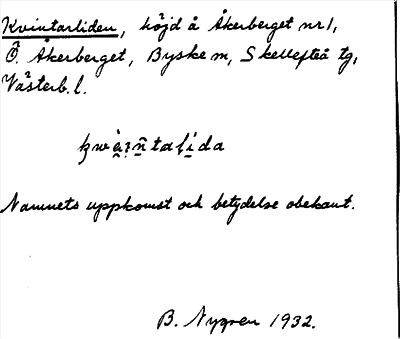 Kvintarliden, höjd å Åkerberget nr 1,
Ö. Åkerberget, Byske m, Skellefteå tg,
Västerb. l.
Namnets uppkomst och betydelse obekant.
B. Nygren 1932.